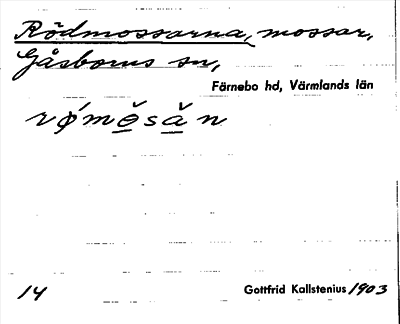 Rödmossarna, mossar,
Gåsborns sn,
Färnebo hd, Värmlands län
rǿmǒ̲sǎ̲n
14 Gottfrid Kallstenius 1903